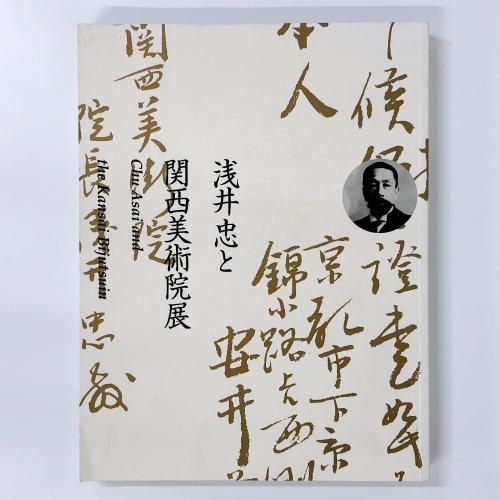 本人
候
證
京都市下京
錦小路
安井
浅井忠と
関西美術院展
Chu Asai and
the Kansai Bijutsuin
関西美術院
院長浅井忠